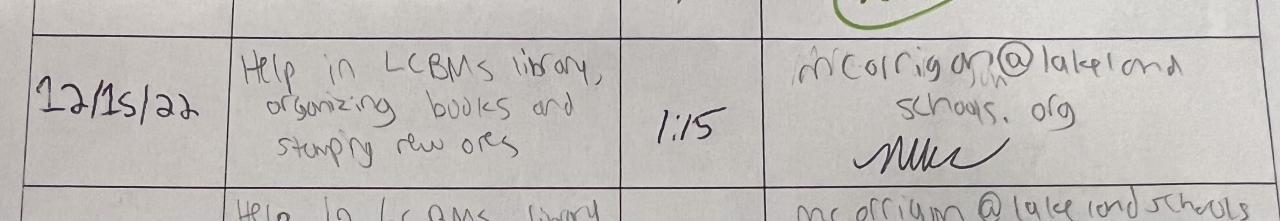 12/15/22
Help in LCBMS library,
organizing books and
stamping new ones
1:15
mcorrigan@lakeland
schools.org
Help in LCBMS library
mcorrigan@lakelandschools